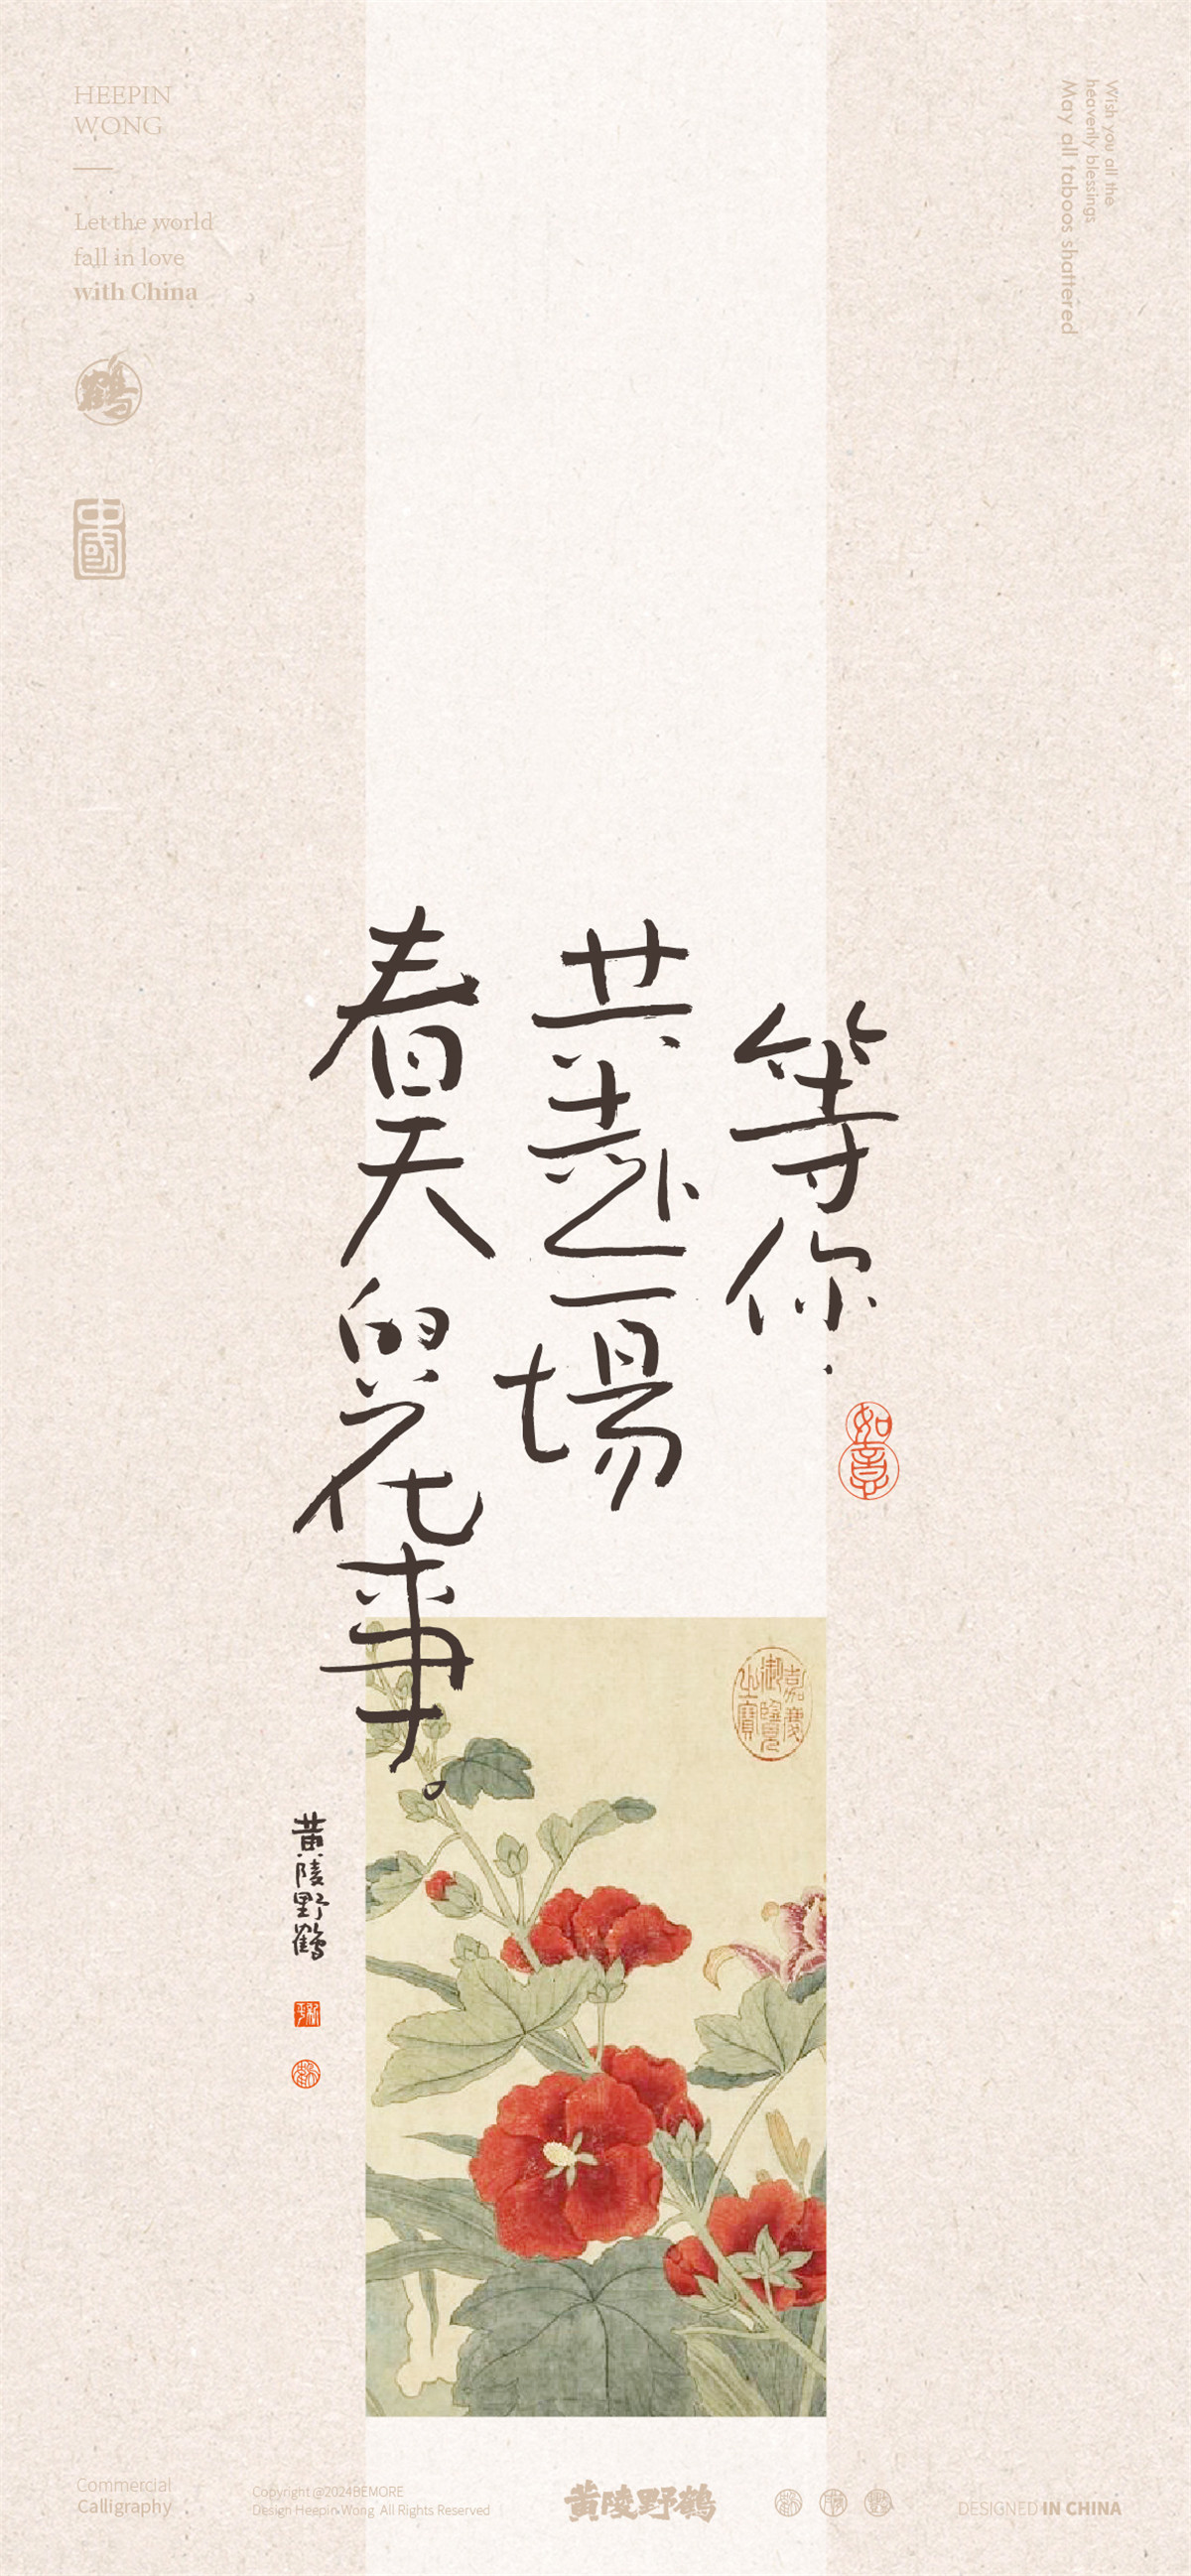 HEEPIN
WONG
Let the world
fall in love
with China
鹤
中國
Wish you all the
heavenly blessings
May all taboos shattered
等你
共赴一場
春天的花事。
如意
嘉慶
御覽
之寶
黄陵野鶴
Commercial
Calligraphy
Copyright @2024BEMORE
Design Heepin Wong All Rights Reserved
黄陵野鹤
DESIGNED IN CHINA